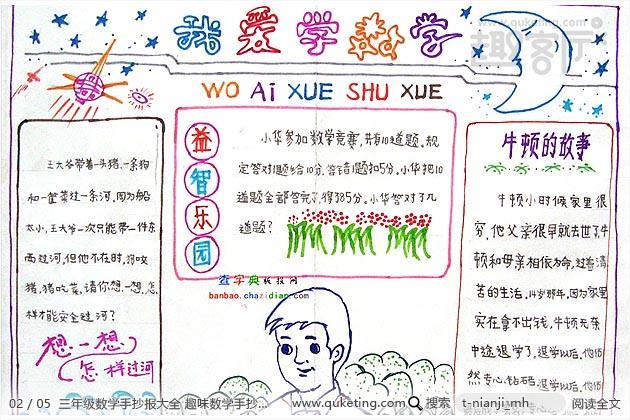 www.quketing.com
趣客厅
我爱学数学
WO Ai XUE SHU XUE
王大爷带着一头猪、一条狗
和一筐菜过一条河,因为船
太小,王大爷一次只能带一件东
西过河,但他不在时,狗咬
猪,猪吃菜,请你想一想,怎
样才能安全过河?
想一想
怎样过河
益智乐园
小华参加数学竞赛,共有10道题,规
定答对1题给10分,答错1题扣5分,小华把10
道题全部答完了,得了85分,小华答对了几
道题?
查字典板报网
banbao.chazidian.com
牛顿的故事
牛顿小时候家里很
穷,他父亲很早就去世了,牛
顿和母亲相依为命,过着清
苦的生活,14岁那年,因为家里
实在拿不出钱,牛顿无奈
中途退学了,退学以后,他仍
然专心钻研
02 / 05 三年级数学手抄报大全 趣味数学手抄...
www.quketing.com
搜索
t-nianji-mh
阅读全文